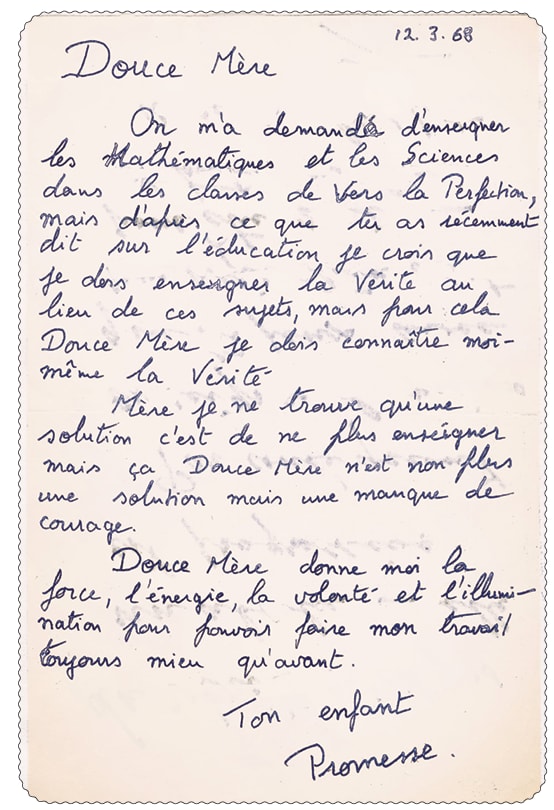 12.3.68
Douce Mère
On m'a demandé d'enseigner
les Mathématiques et les Sciences
dans les classes de Vers la Perfection,
mais d'après ce que tu as récemment
dit sur l'éducation je crois que
je dois enseigner la Vérité au
lieu de ces sujets, mais pour cela
Douce Mère je dois connaître moi-
même la Vérité
Mère je ne trouve qu'une
solution c'est de ne plus enseigner
mais ça Douce Mère n'est non plus
une solution mais une manque de
courage.
Douce Mère donne moi la
force, l'énergie, la volonté et l'illumi-
nation pour pouvoir faire mon travail
toujours mieu qu'avant.
Ton enfant
Promesse.